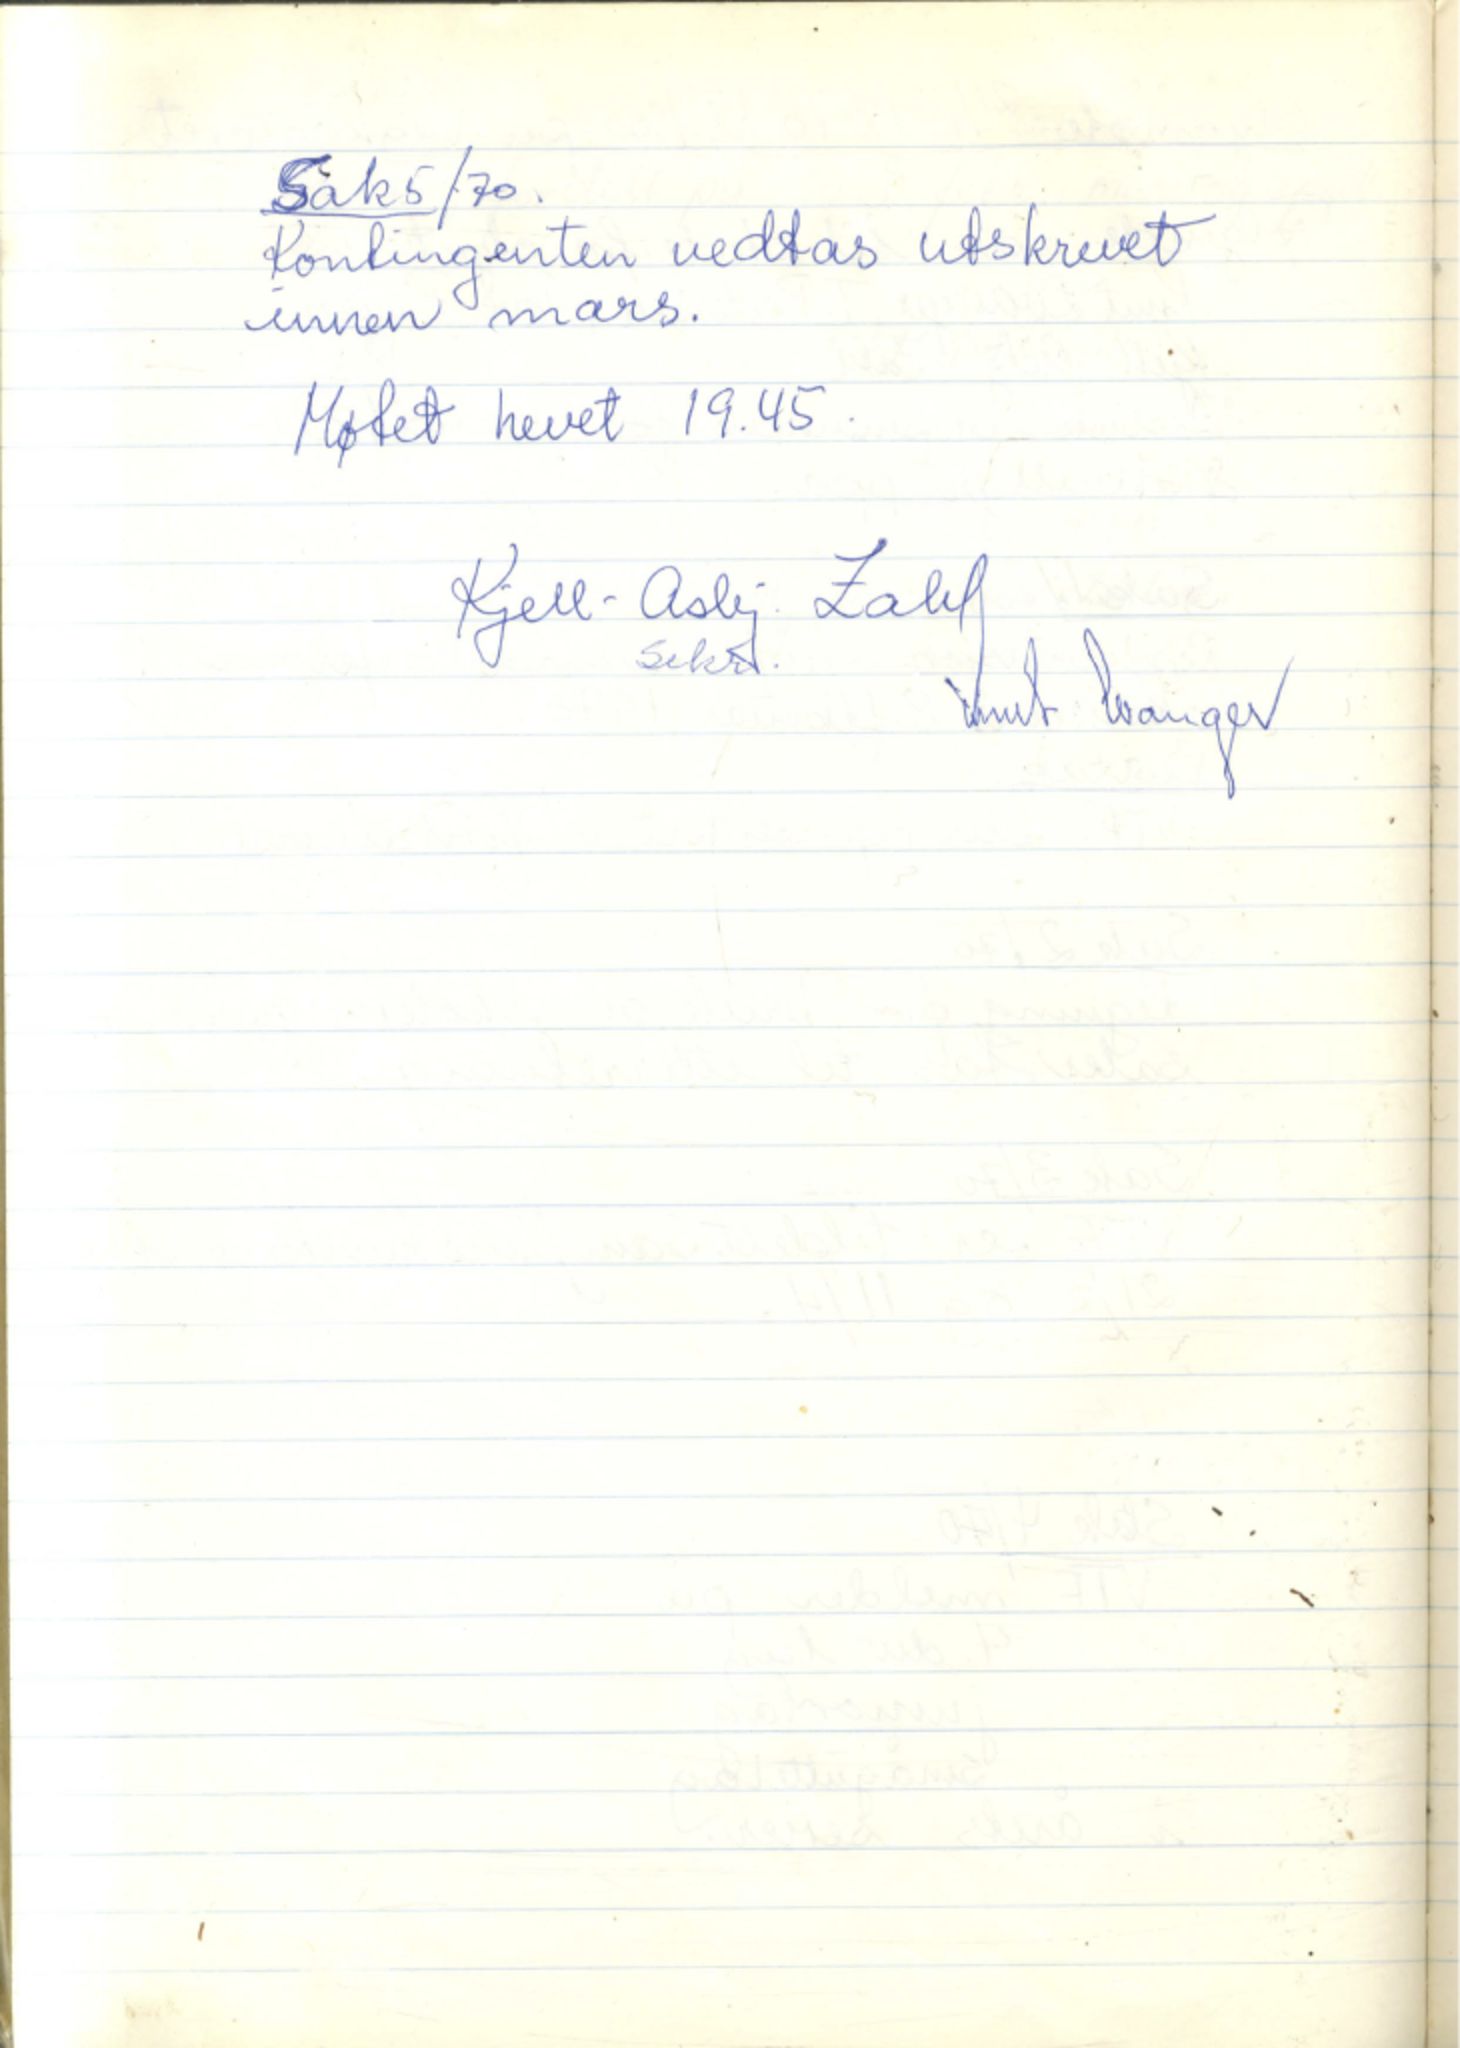 Sak 5/70.
Kontingenten vedtas utskrevet
innen mars.
Møtet hevet 19.45.
Kjell-Asbj. Zahl
sekr.
Knut Evanger